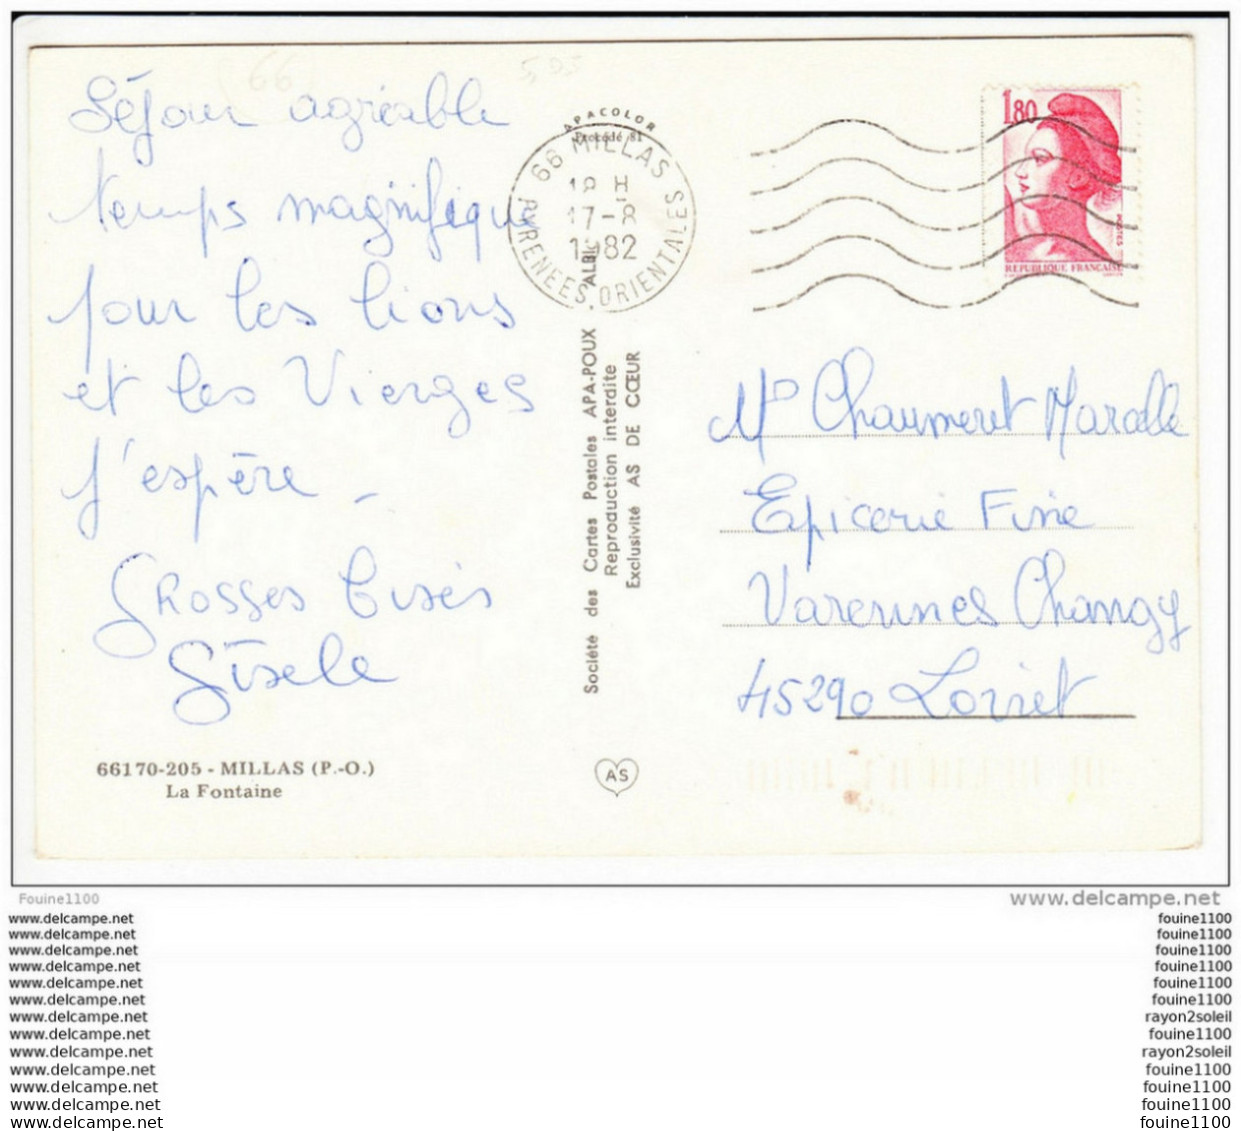 (66)
505
Séjour agréable
temps magnifique
pour les lions
et les Vierges
j'espère -
Grosses bises
Gisèle
66170-205 - MILLAS (P.-O.)
La Fontaine
APACOLOR
Procédé 81
66 MILLAS
PYRENEES ORIENTALES
18 H
17-8
1982
Société des Cartes Postales APA-POUX ALBI
Reproduction interdite
Exclusivité AS DE CŒUR
AS
1,80
POSTES
REPUBLIQUE FRANÇAISE
Chaumeret
Epicerie Fine
Varennes Changy
45290 Loiret
Fouine1100
www.delcampe.net
www.delcampe.net
fouine1100
www.delcampe.net
fouine1100
www.delcampe.net
fouine1100
www.delcampe.net
fouine1100
www.delcampe.net
fouine1100
www.delcampe.net
fouine1100
www.delcampe.net
rayon2soleil
www.delcampe.net
fouine1100
www.delcampe.net
rayon2soleil
www.delcampe.net
fouine1100
www.delcampe.net
fouine1100
www.delcampe.net
fouine1100
www.delcampe.net
fouine1100